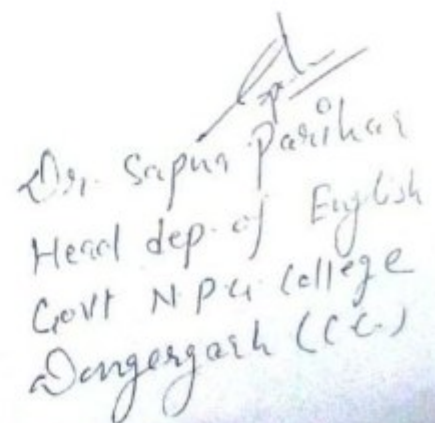 Dr. Sapna Parihar
Head dep. of English
Govt N.P.G. College
Dongergarh (C.G.)